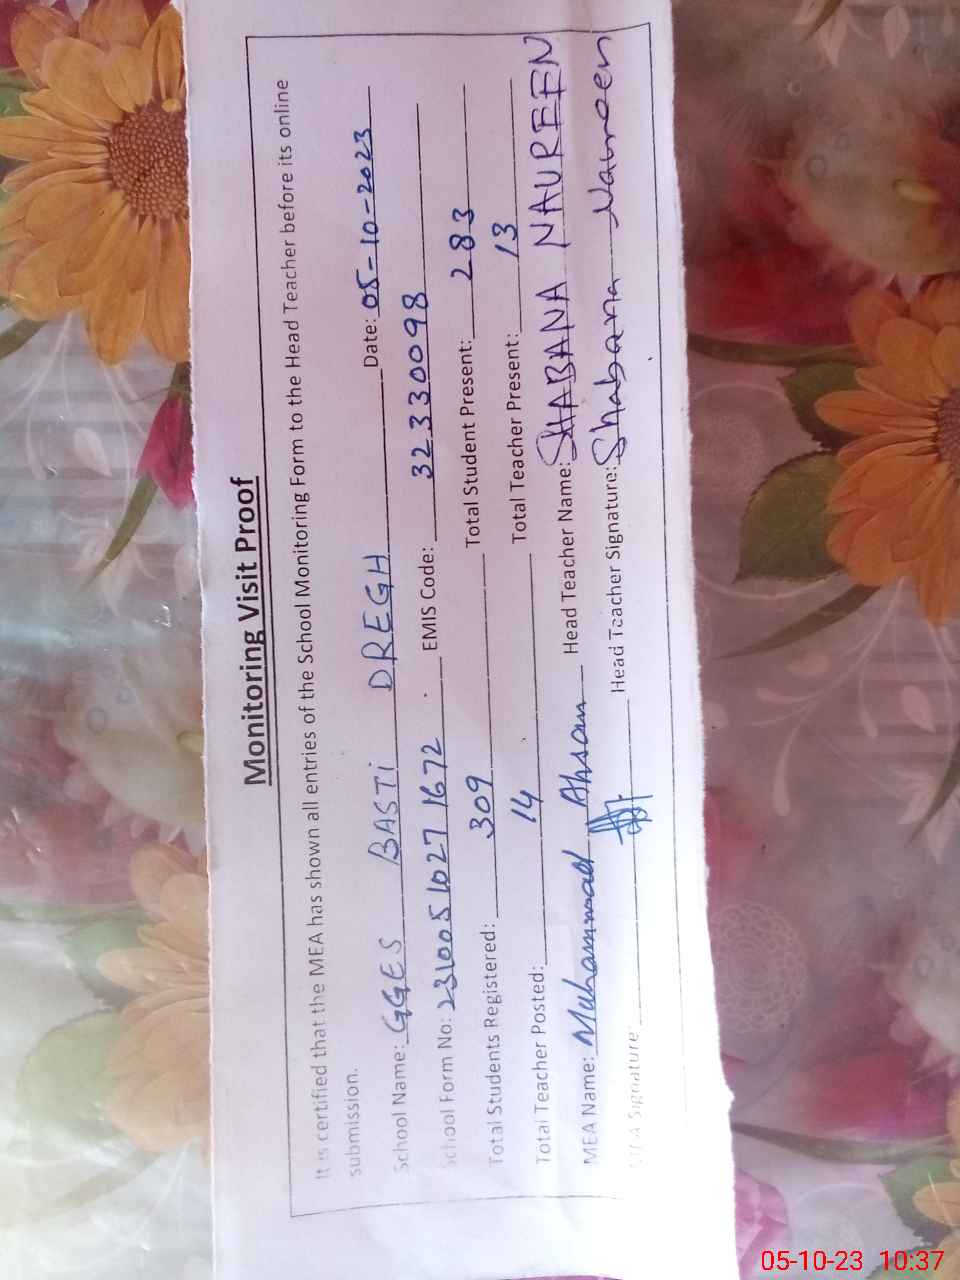 Monitoring Visit Proof
It is certified that the MEA has shown all entries of the School Monitoring Form to the Head Teacher before its online
submission.
School Name: GGES BASTi DREGH Date: 05-10-2023
School Form No: 231005 1027 1672 EMIS Code: 32330098
Total Students Registered: 309 Total Student Present: 283
Total Teacher Posted: 14 Total Teacher Present: 13
MEA Name: Muhammad Ahsan Head Teacher Name: SHABANA NAUREEN
MEA Signature: Head Teacher Signature: Shabana Naureen
05-10-23 10:37